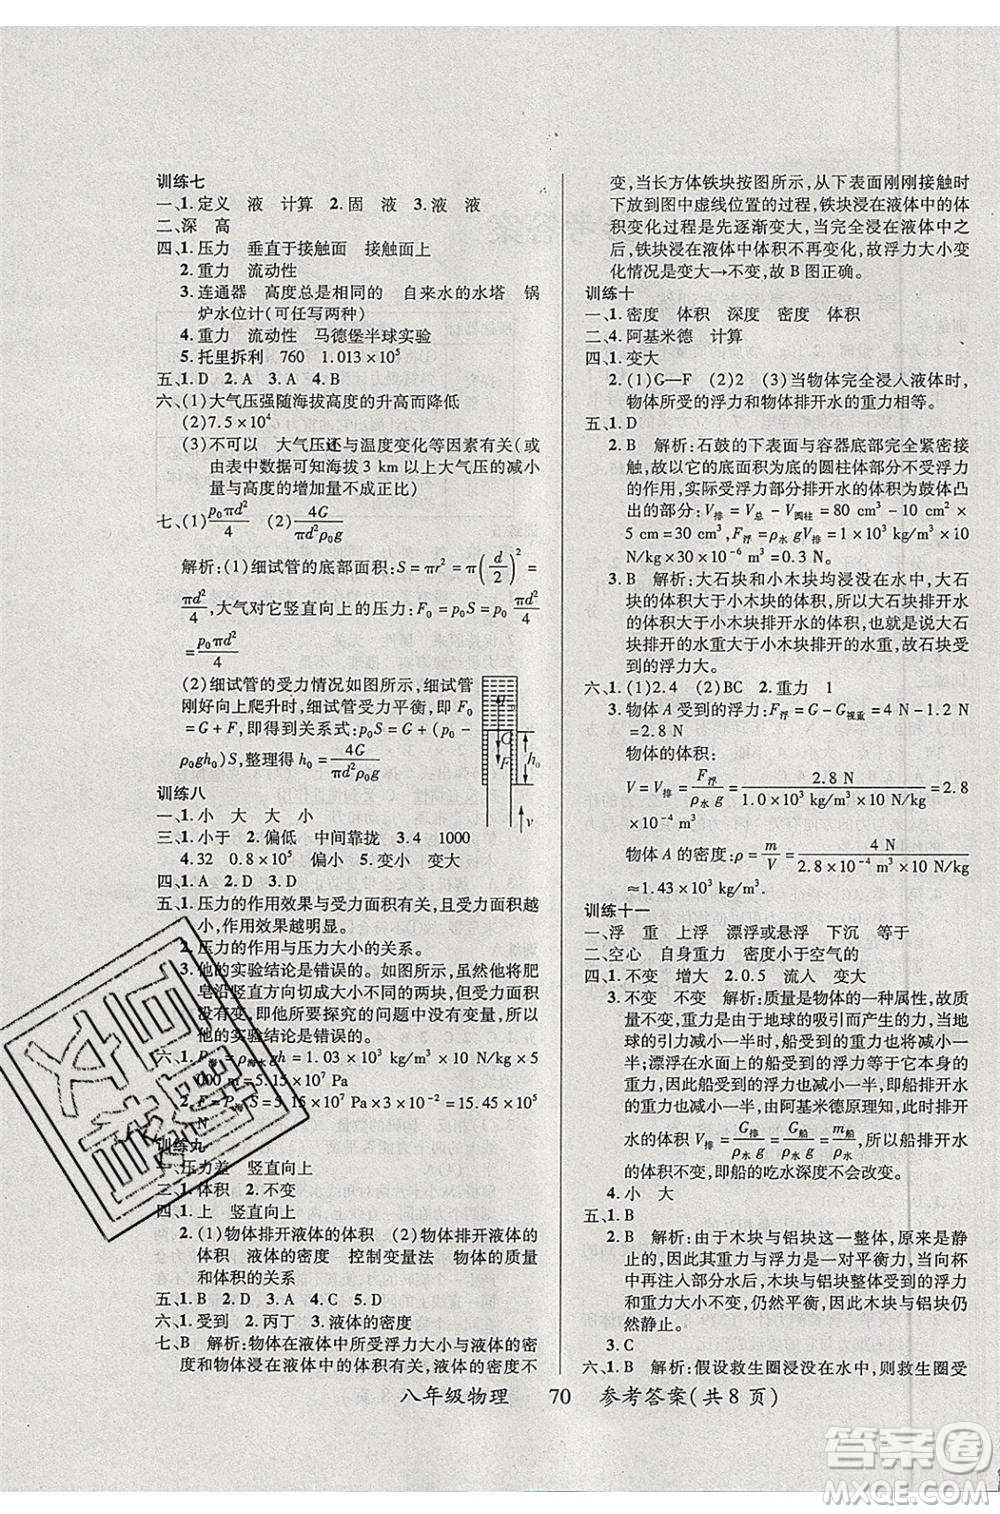 训练七
一、1.定义　液　计算　2.固　液　3.液　液
二、深　高
四、1.压力　垂直于接触面　接触面上
2.重力　流动性
3.连通器　高度总是相同的　自来水的水塔　锅
炉水位计(可任写两种)
4.重力　流动性　马德堡半球实验
5.托里拆利　760　1.013×10⁵
五、1.D　2.A　3.A　4.B
六、(1)大气压强随海拔高度的升高而降低
(2)7.5×10⁴
(3)不可以　大气压还与温度变化等因素有关(或
由表中数据可知海拔 3 km 以上大气压的减小
量与高度的增加量不成正比)
七、(1)p₀πd²/4　(2)4G/πd²ρ₀g
解析:(1)细试管的底部面积:S=πr²=π(d/2)²=
πd²/4,大气对它竖直向上的压力:F₀=p₀S=p₀·πd²/4
=p₀πd²/4
(2)细试管的受力情况如图所示,细试管
刚好向上爬升时,细试管受力平衡,即F₀
=G+F,即存在关系式:p₀S=G+(p₀-
ρ₀gh₀)S,整理得 h₀=4G/πd²ρ₀g
G
F
h₀
v
训练八
一、小　大　大　小
三、1.小于　2.偏低　中间靠拢　3.4　1000
4.32　0.8×10⁵　偏小　5.变小　变大
四、1.A　2.D　3.D
五、1.压力的作用效果与受力面积有关,且受力面积越
小,作用效果越明显。
2.压力的作用与压力大小的关系。
3.他的实验结论是错误的。如图所示,将肥
皂沿竖直方向切成大小不同的两块,受力面
积就不相等,所以要探究的问题中没有控制变量,
他的实验结论是错误的。
000 m=5.15×10⁷ Pa
N
训练九
一、压力差　竖直向上
三、1.体积　2.不变
四、1.上　竖直向上
2.(1)物体排开液体的体积　(2)物体排开液体的
体积　液体的密度　控制变量法　物体的质量
和体积的关系
五、1.B　2.D　3.A　4.C　5.D
六、1.受到　2.丙丁　3.液体的密度
七、B　解析:物体在液体中所受浮力大小与液体的密
度和物体浸在液体中的体积有关,液体的密度不
变,当长方体铁块按图所示,从下表面刚刚接触时
下放到图中虚线位置时,铁块浸在液体中的体
积变化过程是先逐渐变大,当铁块全部浸入液
体后,铁块浸在液体中体积不再变化,故浮力大小变
化情况是变大→不变,故 B 图正确。
训练十
一、1.密度　体积　深度　密度　体积
二、4.阿基米德　计算
四、1.变大
2.(1)G—F　(2)2　(3)当物体完全浸入液体时,
物体所受的浮力和物体排开水的重力相等。
五、1.D
2.B　解析:石鼓的下表面与容器底部完全紧密接
触,故以石鼓的底面积为底的圆柱体部分不受浮力
的作用,实际受浮力部分排开水的体积为鼓体凸
出的部分,即V排=V总-V圆柱=80 cm³-10 cm²×
5 cm=30 cm³,F浮=ρ水gV排=1.0×10³ kg/m³×10
N/kg×30×10⁻⁶ m³=0.3 N。
3.B　解析:大石块和小木块均浸没在水中,大石
块的体积大于小木块的体积,所以大石块排开水
的体积大于小木块排开水的体积,也就是说,大
石块排开的水重大于小木块排开的水重,故石块受
到的浮力大。
六、1.(1)2.4　(2)BC　2.重力　1
3.物体 A 受到的浮力:F浮=G-G视重=4 N-1.2 N
=2.8 N
物体的体积:
V=V排=F浮/ρ水g=2.8 N/1.0×10³ kg/m³×10 N/kg=2.8
×10⁻⁴ m³
物体 A 的密度:ρ=m/V=4 N/2.8×10⁻⁴ m³×10 N/kg
≈1.43×10³ kg/m³
训练十一
一、浮　重　上浮　漂浮或悬浮　下沉　等于
二、空心　自身重力　密度小于空气的
四、1.不变　增大　2.0.5　流入　变大
3.不变　不变　解析:质量是物体的一种属性,故质
量不变;重力是由于地球的吸引而产生的力,当
地球的引力减小一半时,船受到的重力也减小一
半;漂浮在水面上的船受到的浮力等于它本身的
重力,因此船受到的浮力也减小一半,而水的密
度不变,g减小一半,由阿基米德原理知,船排开
水的体积 V排=G排/ρ水g=G船/ρ水g=m船/ρ水,所以船排开水的体
积不变,即船的吃水深度不会改变。
4.小　大
五、1.B
2.B　解析:由于木块与铝块的整体,原来是静
止的,因此其重力与浮力是一对平衡力,当向杯
中再注入部分水后,木块与铝块整体受到的浮力
与重力仍然平衡,仍然静止,故此木块与铝块仍
然静止。
3.C
六、1.B　解析:假设救生圈浸没在水中,则救生圈受
八年级物理　70　参考答案(共 8 页)
答案卷
MXQE.COM